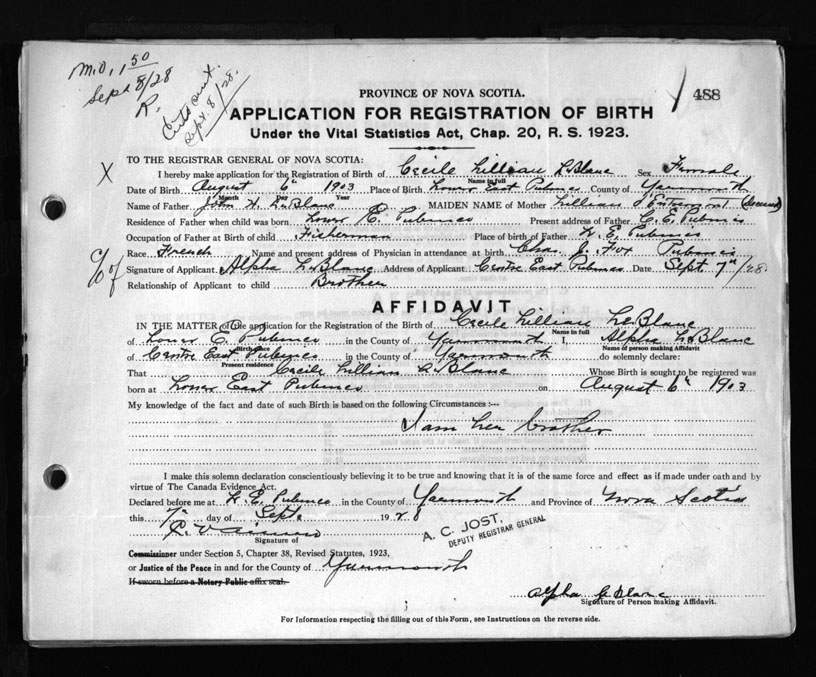 M.O. 1 50
Sept 8/28
R.
Cert. sent.
Sept. 8/28.
488
PROVINCE OF NOVA SCOTIA.
APPLICATION FOR REGISTRATION OF BIRTH
Under the Vital Statistics Act, Chap. 20, R. S. 1923.
X TO THE REGISTRAR GENERAL OF NOVA SCOTIA:
I hereby make application for the Registration of Birth of Cecile Lillian LeBlanc Sex Female
Name in full
Date of Birth August 6th 1903 Place of Birth Lower East Pubnico County of Yarmouth
Month Day Year
Name of Father John H. LeBlanc MAIDEN NAME of Mother Lillian d'Entremont
Residence of Father when child was born Lower E. Pubnico Present address of Father C. E. Pubnico
Occupation of Father at Birth of child Fisherman Place of birth of Father W. E. Pubnico
Race French Name and present address of Physician in attendance at birth Chas. J. Fox Pubnico
Signature of Applicant Alpha LeBlanc Address of Applicant Centre East Pubnico Date Sept 7th/28.
Relationship of Applicant to child Brother
AFFIDAVIT
IN THE MATTER of the application for the Registration of the Birth of Cecile Lillian LeBlanc
Name in full
of Lower E. Pubnico in the County of Yarmouth I, Alpha LeBlanc
Birth place Name of person making Affidavit
of Centre East Pubnico in the County of Yarmouth do solemnly declare:
Present residence
That Cecile Lillian LeBlanc Whose Birth is sought to be registered was
born at Lower East Pubnico on August 6th 1903
My knowledge of the fact and date of such Birth is based on the following Circumstances :—
I am her brother
I make this solemn declaration conscientiously believing it to be true and knowing that it is of the same force and effect as if made under oath and by
virtue of The Canada Evidence Act.
Declared before me at W. E. Pubnico in the County of Yarmouth and Province of Nova Scotia
this 7th day of Sept. 1928
Signature of
A. C. JOST,
DEPUTY REGISTRAR GENERAL
Commissioner under Section 5, Chapter 38, Revised Statutes, 1923,
or Justice of the Peace in and for the County of Yarmouth
If sworn before a Notary Public affix seal.
Alpha LeBlanc
Signature of Person making Affidavit.
For Information respecting the filling out of this Form, see Instructions on the reverse side.